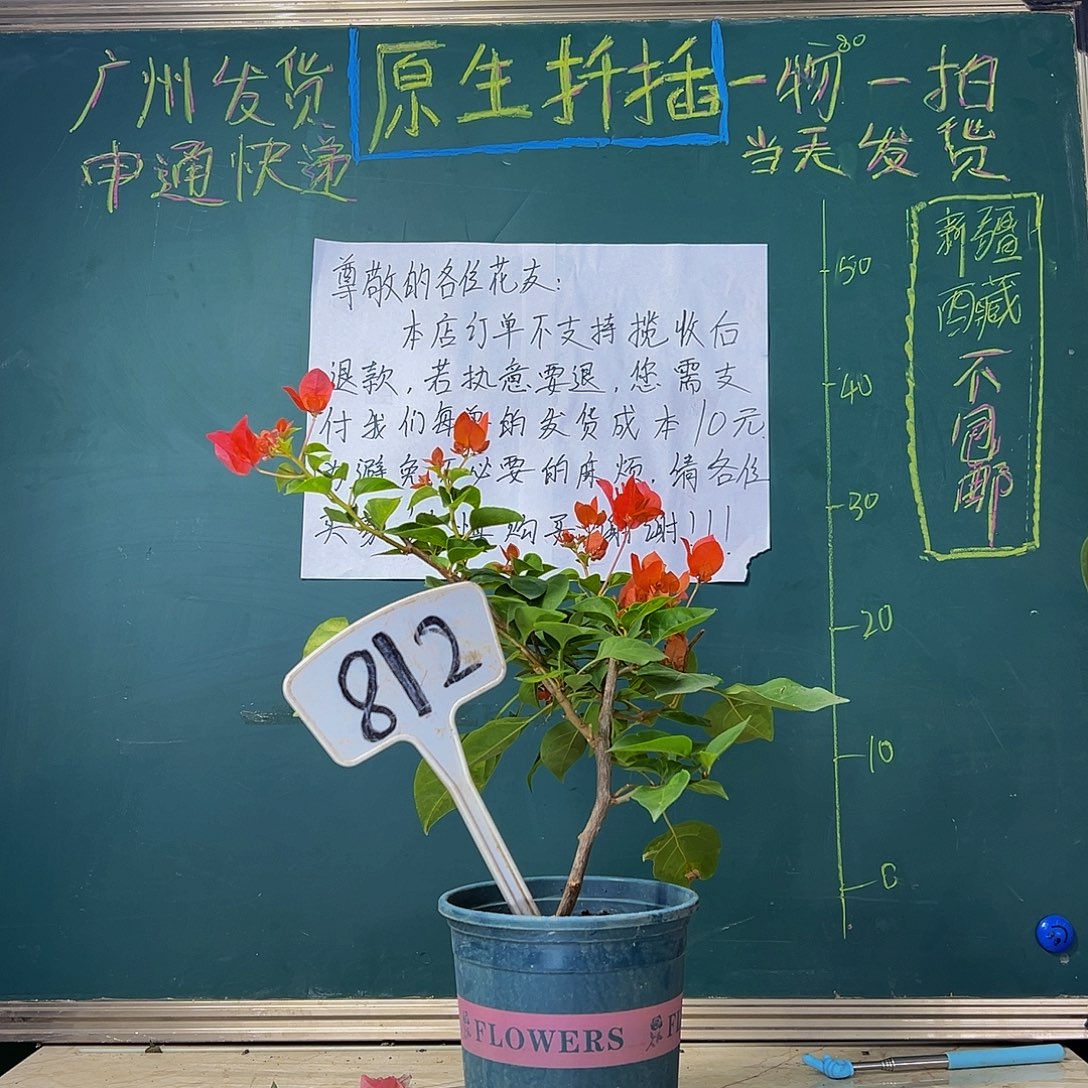 广州发货
申通快递
原生扦插
一物一拍
当天发货
80
新疆
西藏
不包邮
尊敬的各位花友：
本店订单不支持揽收后
退款，若执意要退，您需支
付我们每单的发货成本10元.
避免 必要的麻烦，请各位
买家 购买 谢谢!!!
50
40
30
20
10
0
812
FLOWERS